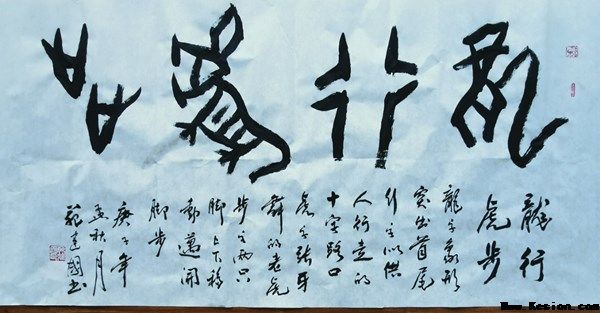 龍行虎步
龍行
虎步
龍字象形
突出首尾
行字以供
人行走的
十字路口
虎字張牙
舞的老虎
步字兩只
脚上下移
動邁開
脚步
庚子年
孟秋月
範建國书
Www.Kesion.com